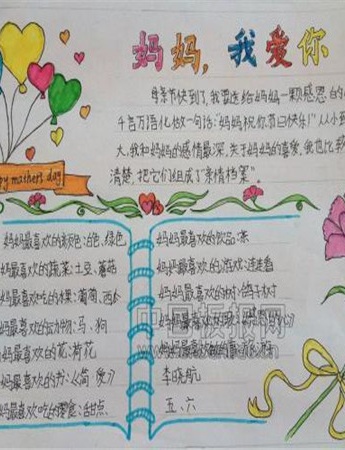 妈妈，我爱你
母亲节快到了，我要送给妈妈一颗感恩的心
千言万语化做一句话："妈妈祝你节日快乐！"从小到
大，我和妈妈的感情最深，关于妈妈的喜爱，我也比较
清楚，把它们组成了"亲情档案"。
happy mothers day
妈妈最喜欢的颜色：白色、绿色
妈妈最喜欢的蔬菜：土豆、蘑菇
妈妈最喜欢吃的水果：葡萄、西瓜
妈妈最喜欢的动物：马、狗
妈妈最喜欢的花：荷花
妈妈最喜欢的书：《简 爱》
妈妈最喜欢吃的零食：甜点
妈妈最喜欢的饮品：茶
妈妈最喜欢的游戏：连连看
妈妈最喜欢的树：鸽子树
妈妈最喜欢的
妈妈最喜欢的
李晓航
五、六